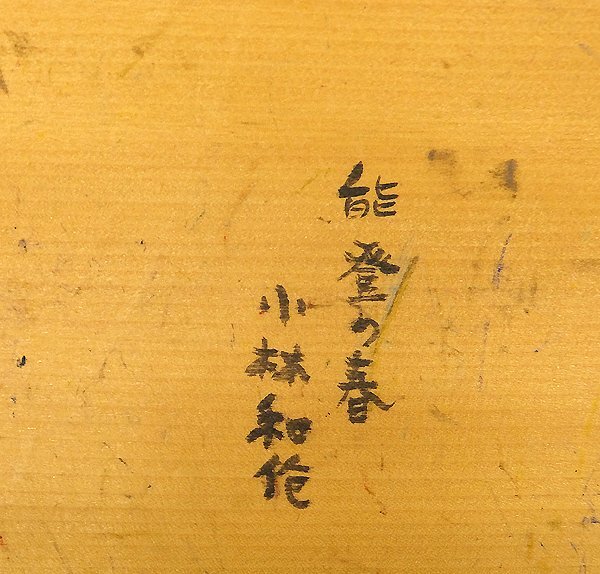 能登の春
小林和作